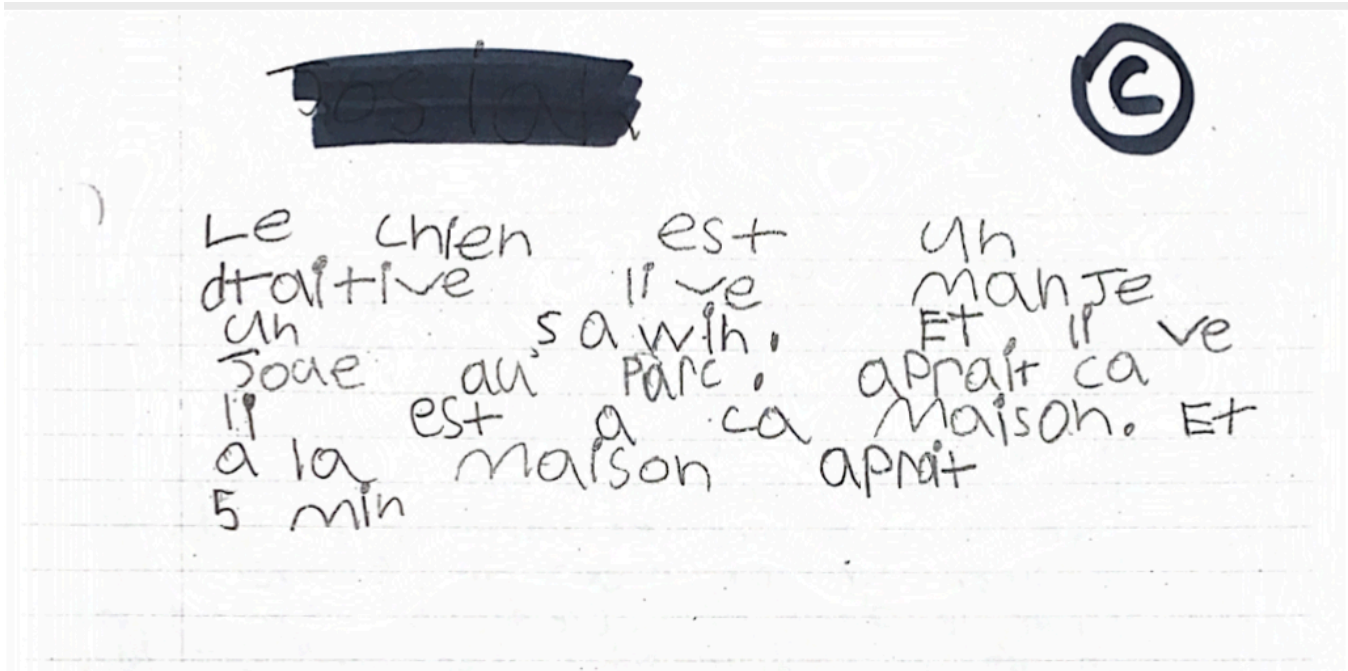 C
Le chien est un
dtaitive il ve manje
un sawin. Et il ve
Joue au parc. aprait ca
il est a ca maison. Et
a la maison aprait
5 min